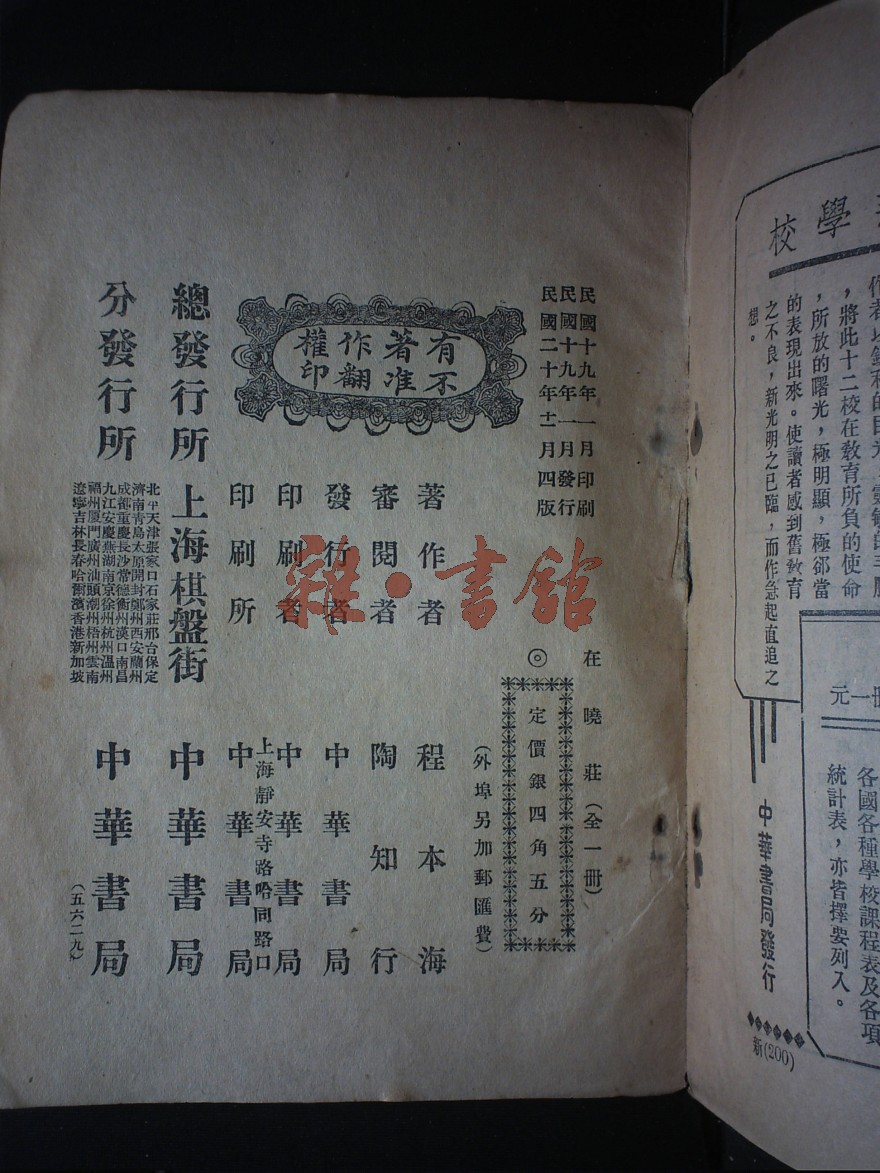 學校
，將此十二校在教育所負的使命
，所放的曙光，極明顯，極卻當
的表現出來。使讀者感到舊教育
之不良，新光明之已臨，而作急起直追之
想。
冊一元
各國各種學校課程表及各項
統計表，亦皆擇要列入。
中華書局發行
新(200)
民國十九年一月印刷
民國十九年一月發行
民國二十年十二月四版
有著作權
不准翻印
在曉莊（全一冊）
◎
定價銀四角五分
（外埠另加郵匯費）
著作者 程本海
審閱者 陶知行
發行者 中華書局
印刷者 中華書局
印刷所 上海靜安寺路哈同路口 中華書局
總發行所 上海棋盤街 中華書局
分發行所 中華書局
北平天津張家口石家莊邢台保定
濟南青島太原開封鄭州西安蘭州
成都重慶長沙常德衡州漢口南昌
九江安慶蕪湖南京徐州杭州溫州
福州廈門廣州汕頭潮州梧州雲南
遼寧吉林長春哈爾濱香港新加坡
（五六二九）
雜·書館